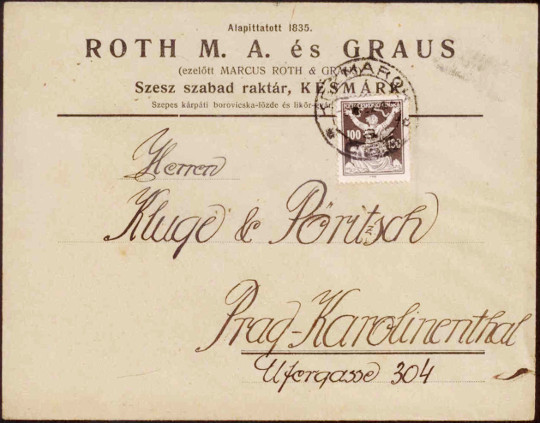 Alapittatott 1835.
ROTH M. A. és GRAUS
(ezelőtt MARCUS ROTH & GRAUS)
Szesz szabad raktár, KÉSMÁRK
Szepes kárpáti borovicska-főzde és likőr-
100 100
Herren
Kluge & Pöritzsch
Prag-Karolinenthal
Ufergasse 304